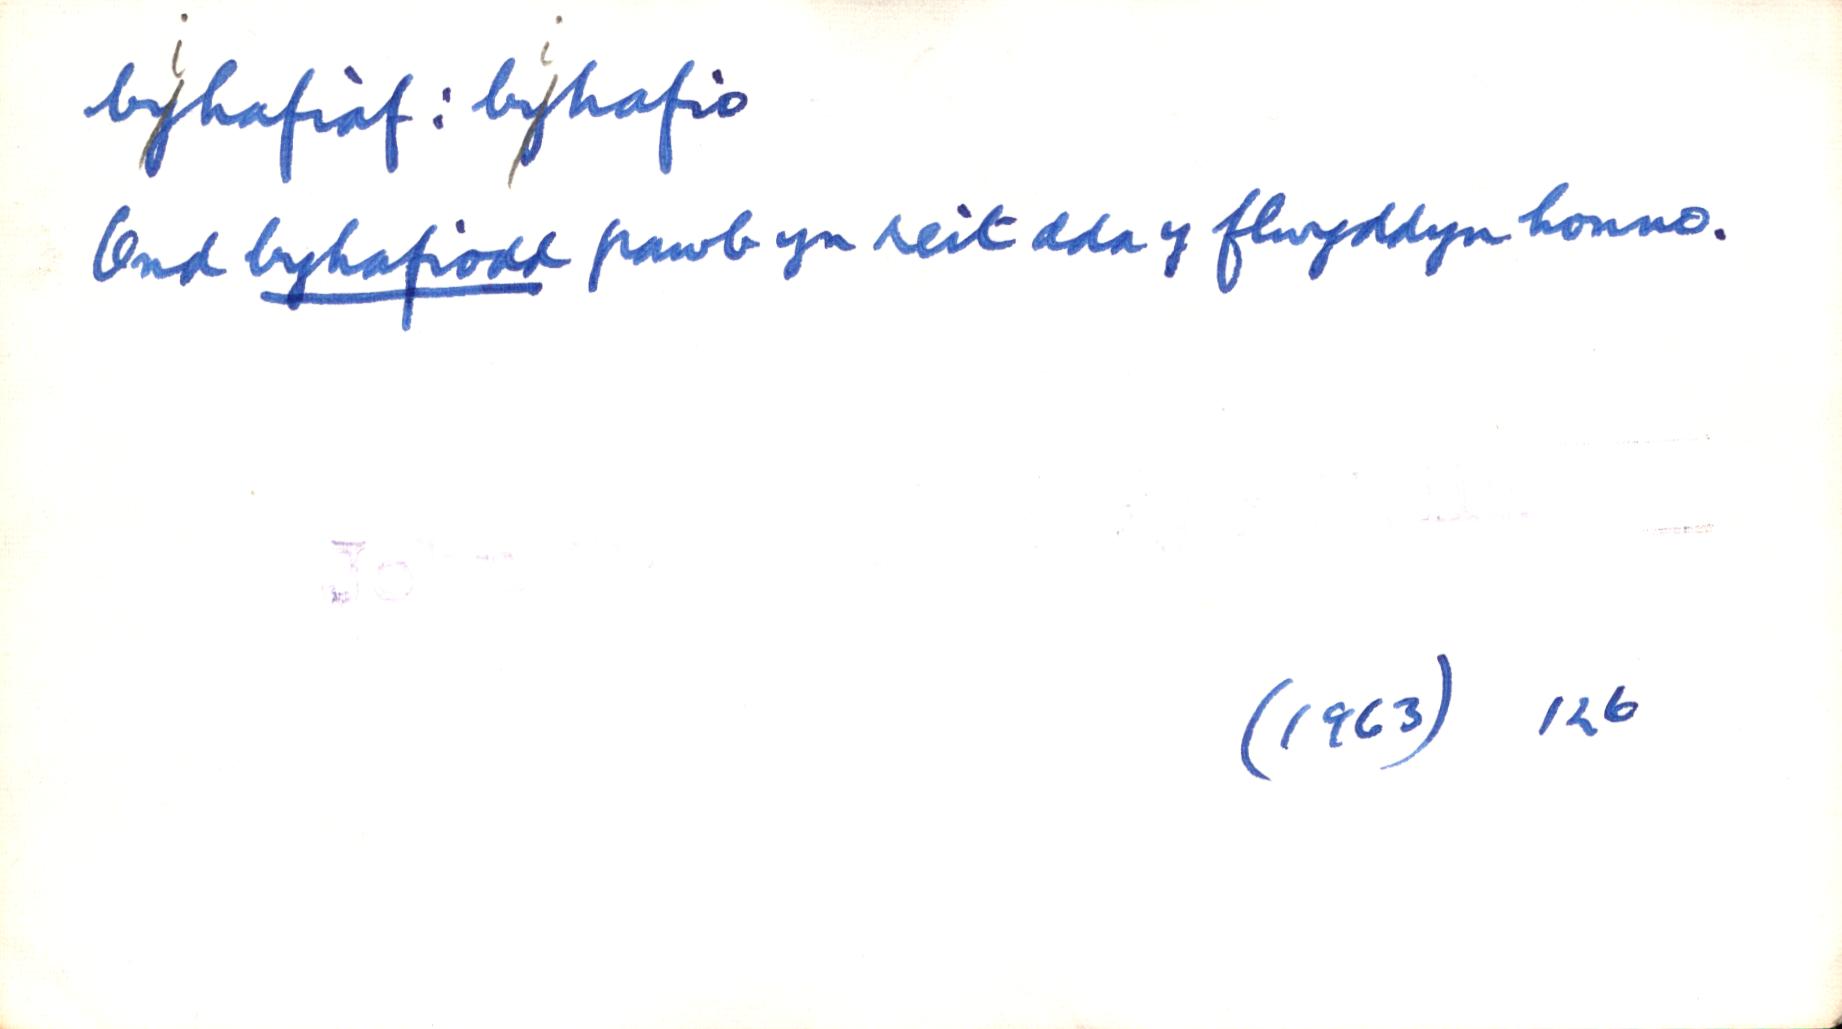 byhafiaf: byhafio
Ond byhafiodd pawb yn reit dda y flwyddyn honno.
(1963) 126